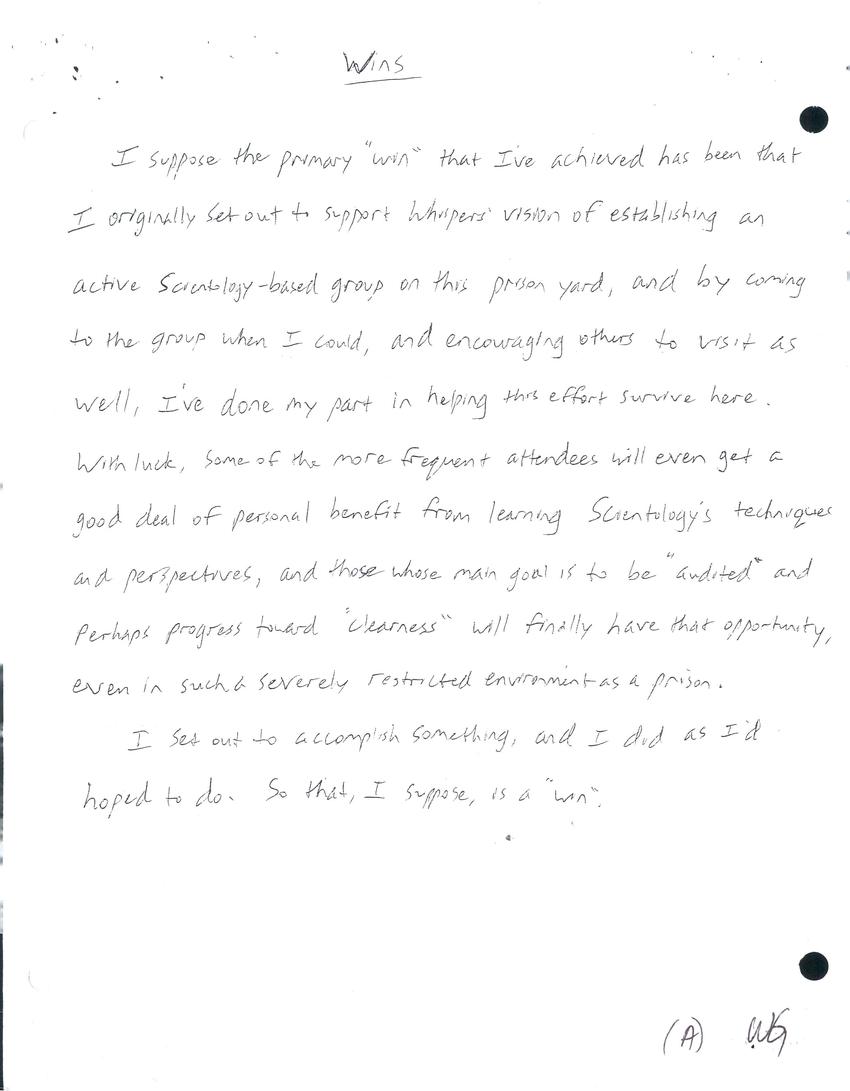 Wins
I suppose the primary "win" that I've achieved has been that
I originally set out to support Whispers' vision of establishing an
active Scientology-based group on this prison yard, and by coming
to the group when I could, and encouraging others to visit as
well, I've done my part in helping this effort survive here.
With luck, some of the more frequent attendees will even get a
good deal of personal benefit from learning Scientology's techniques
and perspectives, and those whose main goal is to be "audited" and
perhaps progress toward "clearness" will finally have that opportunity,
even in such a severely restricted environment as a prison.
I set out to accomplish something, and I did as I'd
hoped to do. So that, I suppose, is a "win".
(A) WG